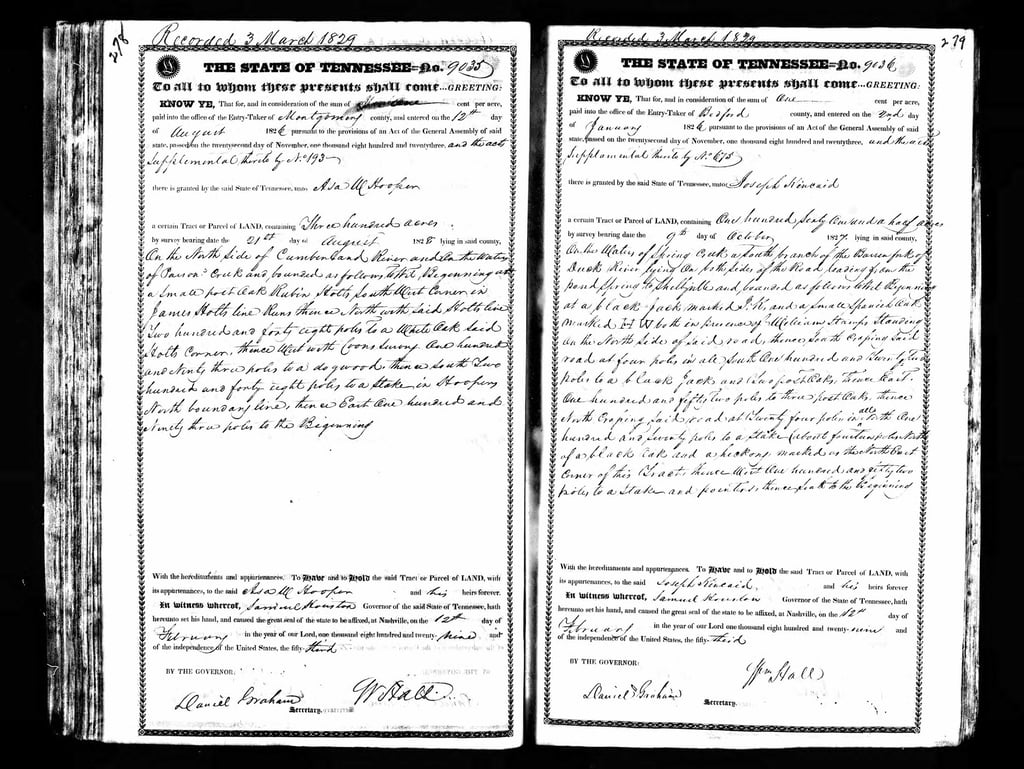 278
Recorded 3 March 1829
THE STATE OF TENNESSEE=No. 9035
To all to whom these presents shall come...GREETING:
KNOW YE, That for, and in consideration of the sum of cent per acre,
paid into the office of the Entry-Taker of Montgomery county, and entered on the 12th day
of August 1826 pursuant to the provisions of an Act of the General Assembly of said
state, passed on the twentysecond day of November, one thousand eight hundred and twentythree, and the acts
Supplemental thereto by No 193
there is granted by the said State of Tennessee, unto Asa W Hooper
a certain Tract or Parcel of LAND, containing Three hundred acres
by survey bearing date the 21st day of August 1828 lying in said county,
On the North Side of Cumberland River and On the waters
of Parsons Creek and bounded as follows, to Wit, Beginning at
a Small post Oak Rubin Holts South West Corner in
James Holts line Runs thence North with Said Holts line
Two hundred and forty eight poles to a White Oak Said
Holts Corner, thence West with One hundred
and Ninty three poles to a dogwood, thence South Two
hundred and forty eight poles to a Stake in Hoopers
North boundary line, thence East One hundred and
Ninety three poles to the Beginning
With the hereditaments and appurtenances. To Have and to Hold the said Tract or Parcel of LAND, with
its appurtenances, to the said Asa W Hooper and his heirs forever.
In witness whereof, Samuel Houston Governor of the said State of Tennessee, hath
hereunto set his hand, and caused the great seal of the state to be affixed, at Nashville, on the 12th day of
February in the year of our Lord, one thousand eight hundred and twenty-nine and
of the independence of the United States, the fifty-third
BY THE GOVERNOR:
W Hall
Daniel Graham
Secretary.
279
Recorded 3 March 1829
THE STATE OF TENNESSEE=No. 9036
To all to whom these presents shall come...GREETING:
KNOW YE, That for, and in consideration of the sum of One cent per acre,
paid into the office of the Entry-Taker of Bedford county, and entered on the 2nd day
of January 1826 pursuant to the provisions of an Act of the General Assembly of said
state, passed on the twentysecond day of November, one thousand eight hundred and twentythree, and the acts
Supplemental thereto by No 675
there is granted by the said State of Tennessee, unto Joseph Kincaid
a certain Tract or Parcel of LAND, containing One hundred Sixty One and a half acres
by survey bearing date the 9th day of October 1827. lying in said county,
On the Waters of Spring Creek a South branch of the Barren fork of
Duck River, lying On both Sides of the Road leading from the
pond Spring to Shelbyville and bounded as follows to Wit Beginning
at a black Jack marked J.K, and a Small Spanish Oak
marked H W both in presence of William Stamps Standing
on the North Side of Said road, thence South Croping Said
road at four poles in all South One hundred and Seventy
poles to a black Jack and two post Oaks, thence East
One hundred and fifty two poles to three post Oaks, thence
North Croping Said road at twenty four poles in all North One
hundred and Seventy poles to a Stake (about fourteen poles North
of a black Oak and a hickory marked as the North East
Corner of this Tract, thence West One hundred and fifty two
poles to a Stake and pointers, thence South to the Beginning
With the hereditaments and appurtenances. To Have and to Hold the said Tract or Parcel of LAND, with
its appurtenances, to the said Joseph Kincaid and his heirs forever
In witness whereof, Samuel Houston Governor of the State of Tennessee, hath
hereunto set his hand, and caused the great seal of the state to be affixed, at Nashville, on the 12th day of
February in the year of our Lord one thousand eight hundred and twenty-nine and
of the independence of the United States, the fifty-third
BY THE GOVERNOR:
Wm Hall
Daniel Graham
Secretary.